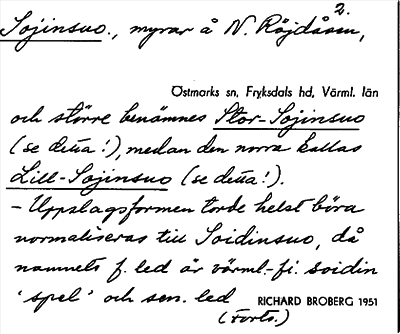 2.
Sojinsuo., myrar å N. Röjdåsen,
Östmarks sn, Fryksdals hd, Värml. län
och större benämnes Stor-Sojinsuo
(se detta!), medan den norra kallas
Lill-Sojinsuo (se detta!).
– Uppslagsformen torde helst böra
normaliseras till Soidinsuo, då
namnets f. led är värml.-fi. soidin
'spel' och sen. led RICHARD BROBERG 1951
(Forts.)